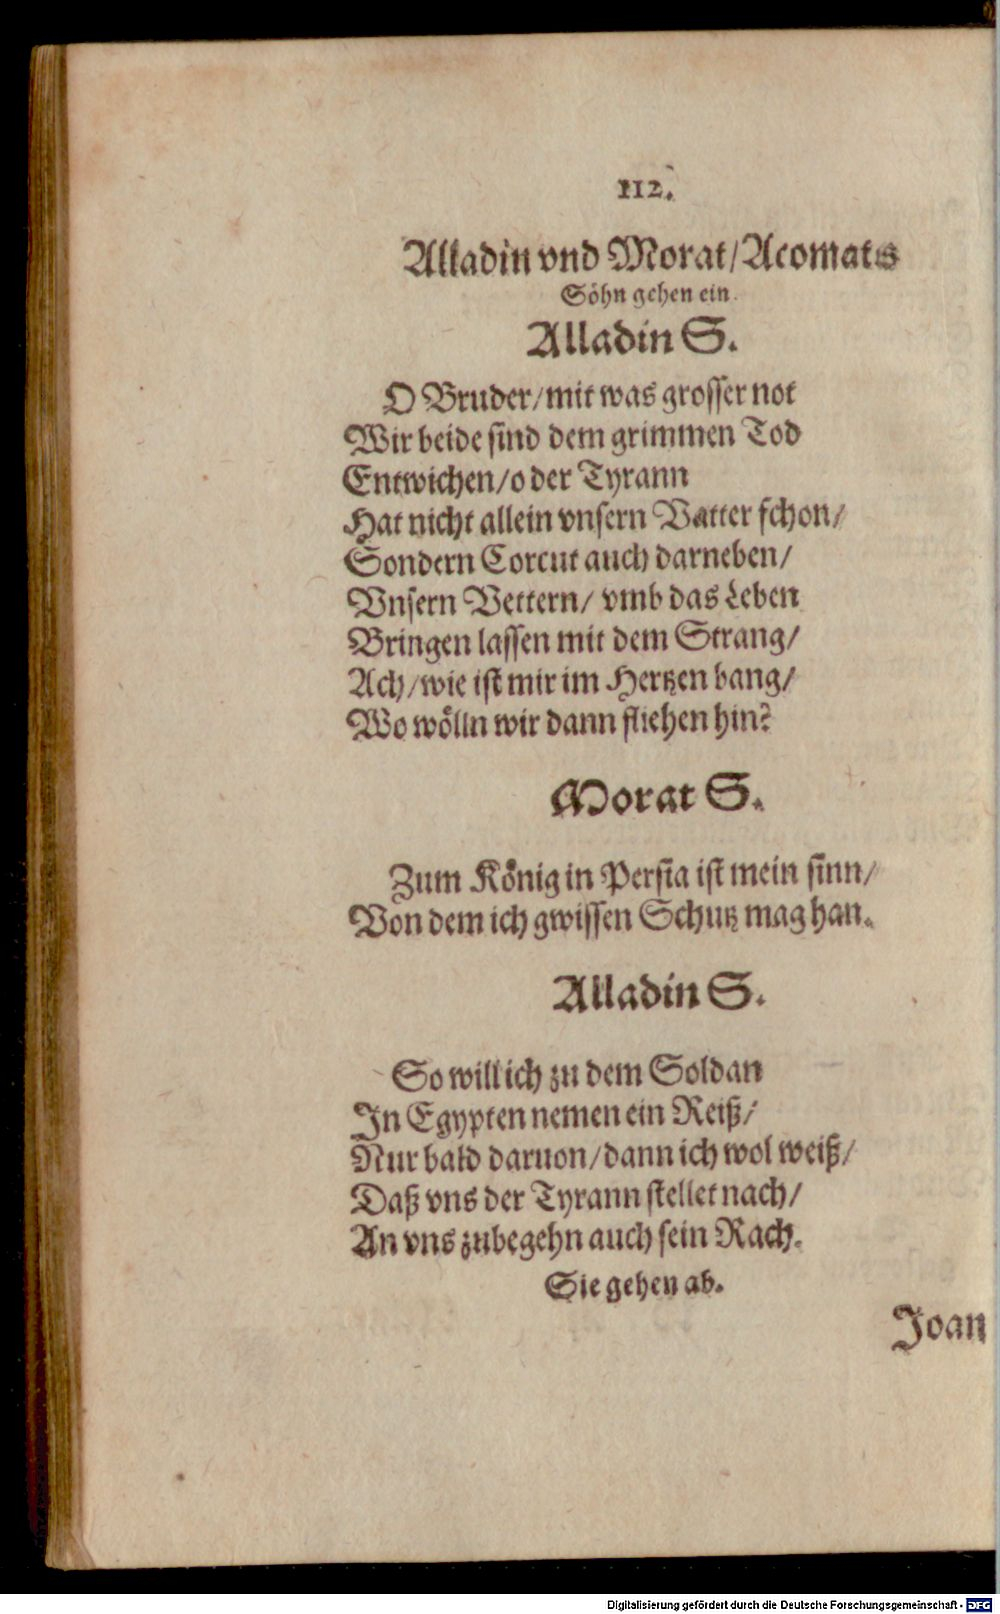 112.
Alladin vnd Morat/Acomats
Söhn gehen ein.
Alladin S.
O Bruder/mit was grosser not
Wir beide sind dem grimmen Tod
Entwichen/o der Tyrann
Hat nicht allein vnsern Vatter schon/
Sondern Corcut auch darneben/
Vnsern Vettern/ vmb das Leben
Bringen lassen mit dem Strang/
Ach/wie ist mir im Hertzen bang/
Wo wölln wir dann fliehen hin?
Morat S.
Zum König in Persia ist mein sinn/
Von dem ich gwissen Schutz mag han.
Alladin S.
So will ich zu dem Soldan
In Egypten nemen ein Reiß/
Nur bald daruon/dann ich wol weiß/
Daß vns der Tyrann stellet nach/
An vns zubegehn auch sein Rach.
Sie gehen ab.
Joan
Digitalisierung gefördert durch die Deutsche Forschungsgemeinschaft - DFG